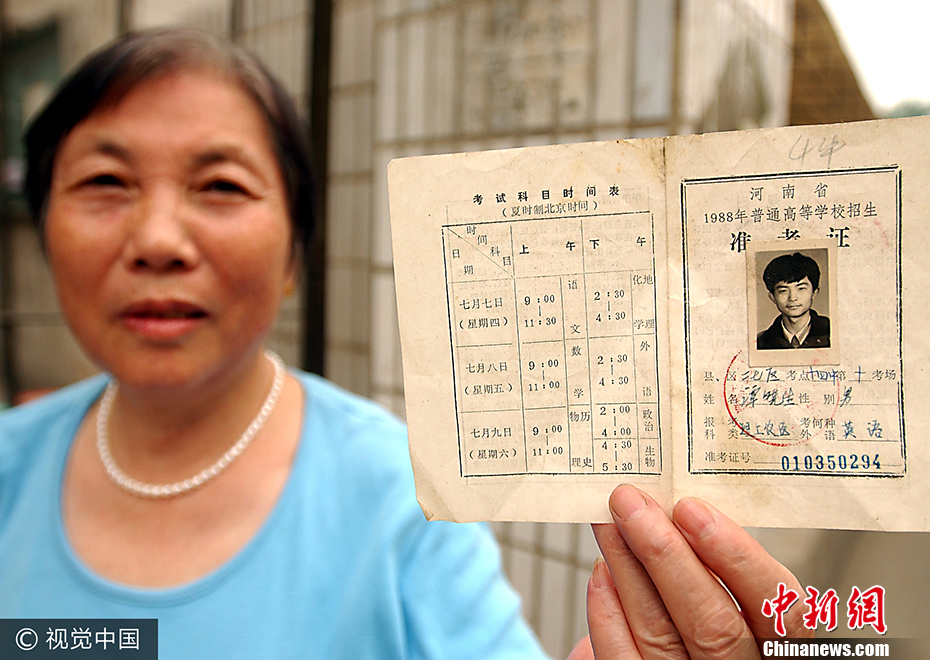 考试科目时间表
（夏时制北京时间）
时间
科目
日期
上午
下午
七月七日
（星期四）
9：00
11：30
语文
2：30
4：30
化学
地理
七月八日
（星期五）
9：00
11：00
数学
2：30
4：30
外语
七月九日
（星期六）
9：00
11：00
物理
历史
2：00
4：00
政治
4：30
5：30
生物
河南省
1988年普通高等学校招生
准考证
县、区 考点十四中第十考场
姓名 性别 男
报考科类 理工农医 考何种外语 英语
准考证号 010350294
© 视觉中国
中新网
Chinanews.com